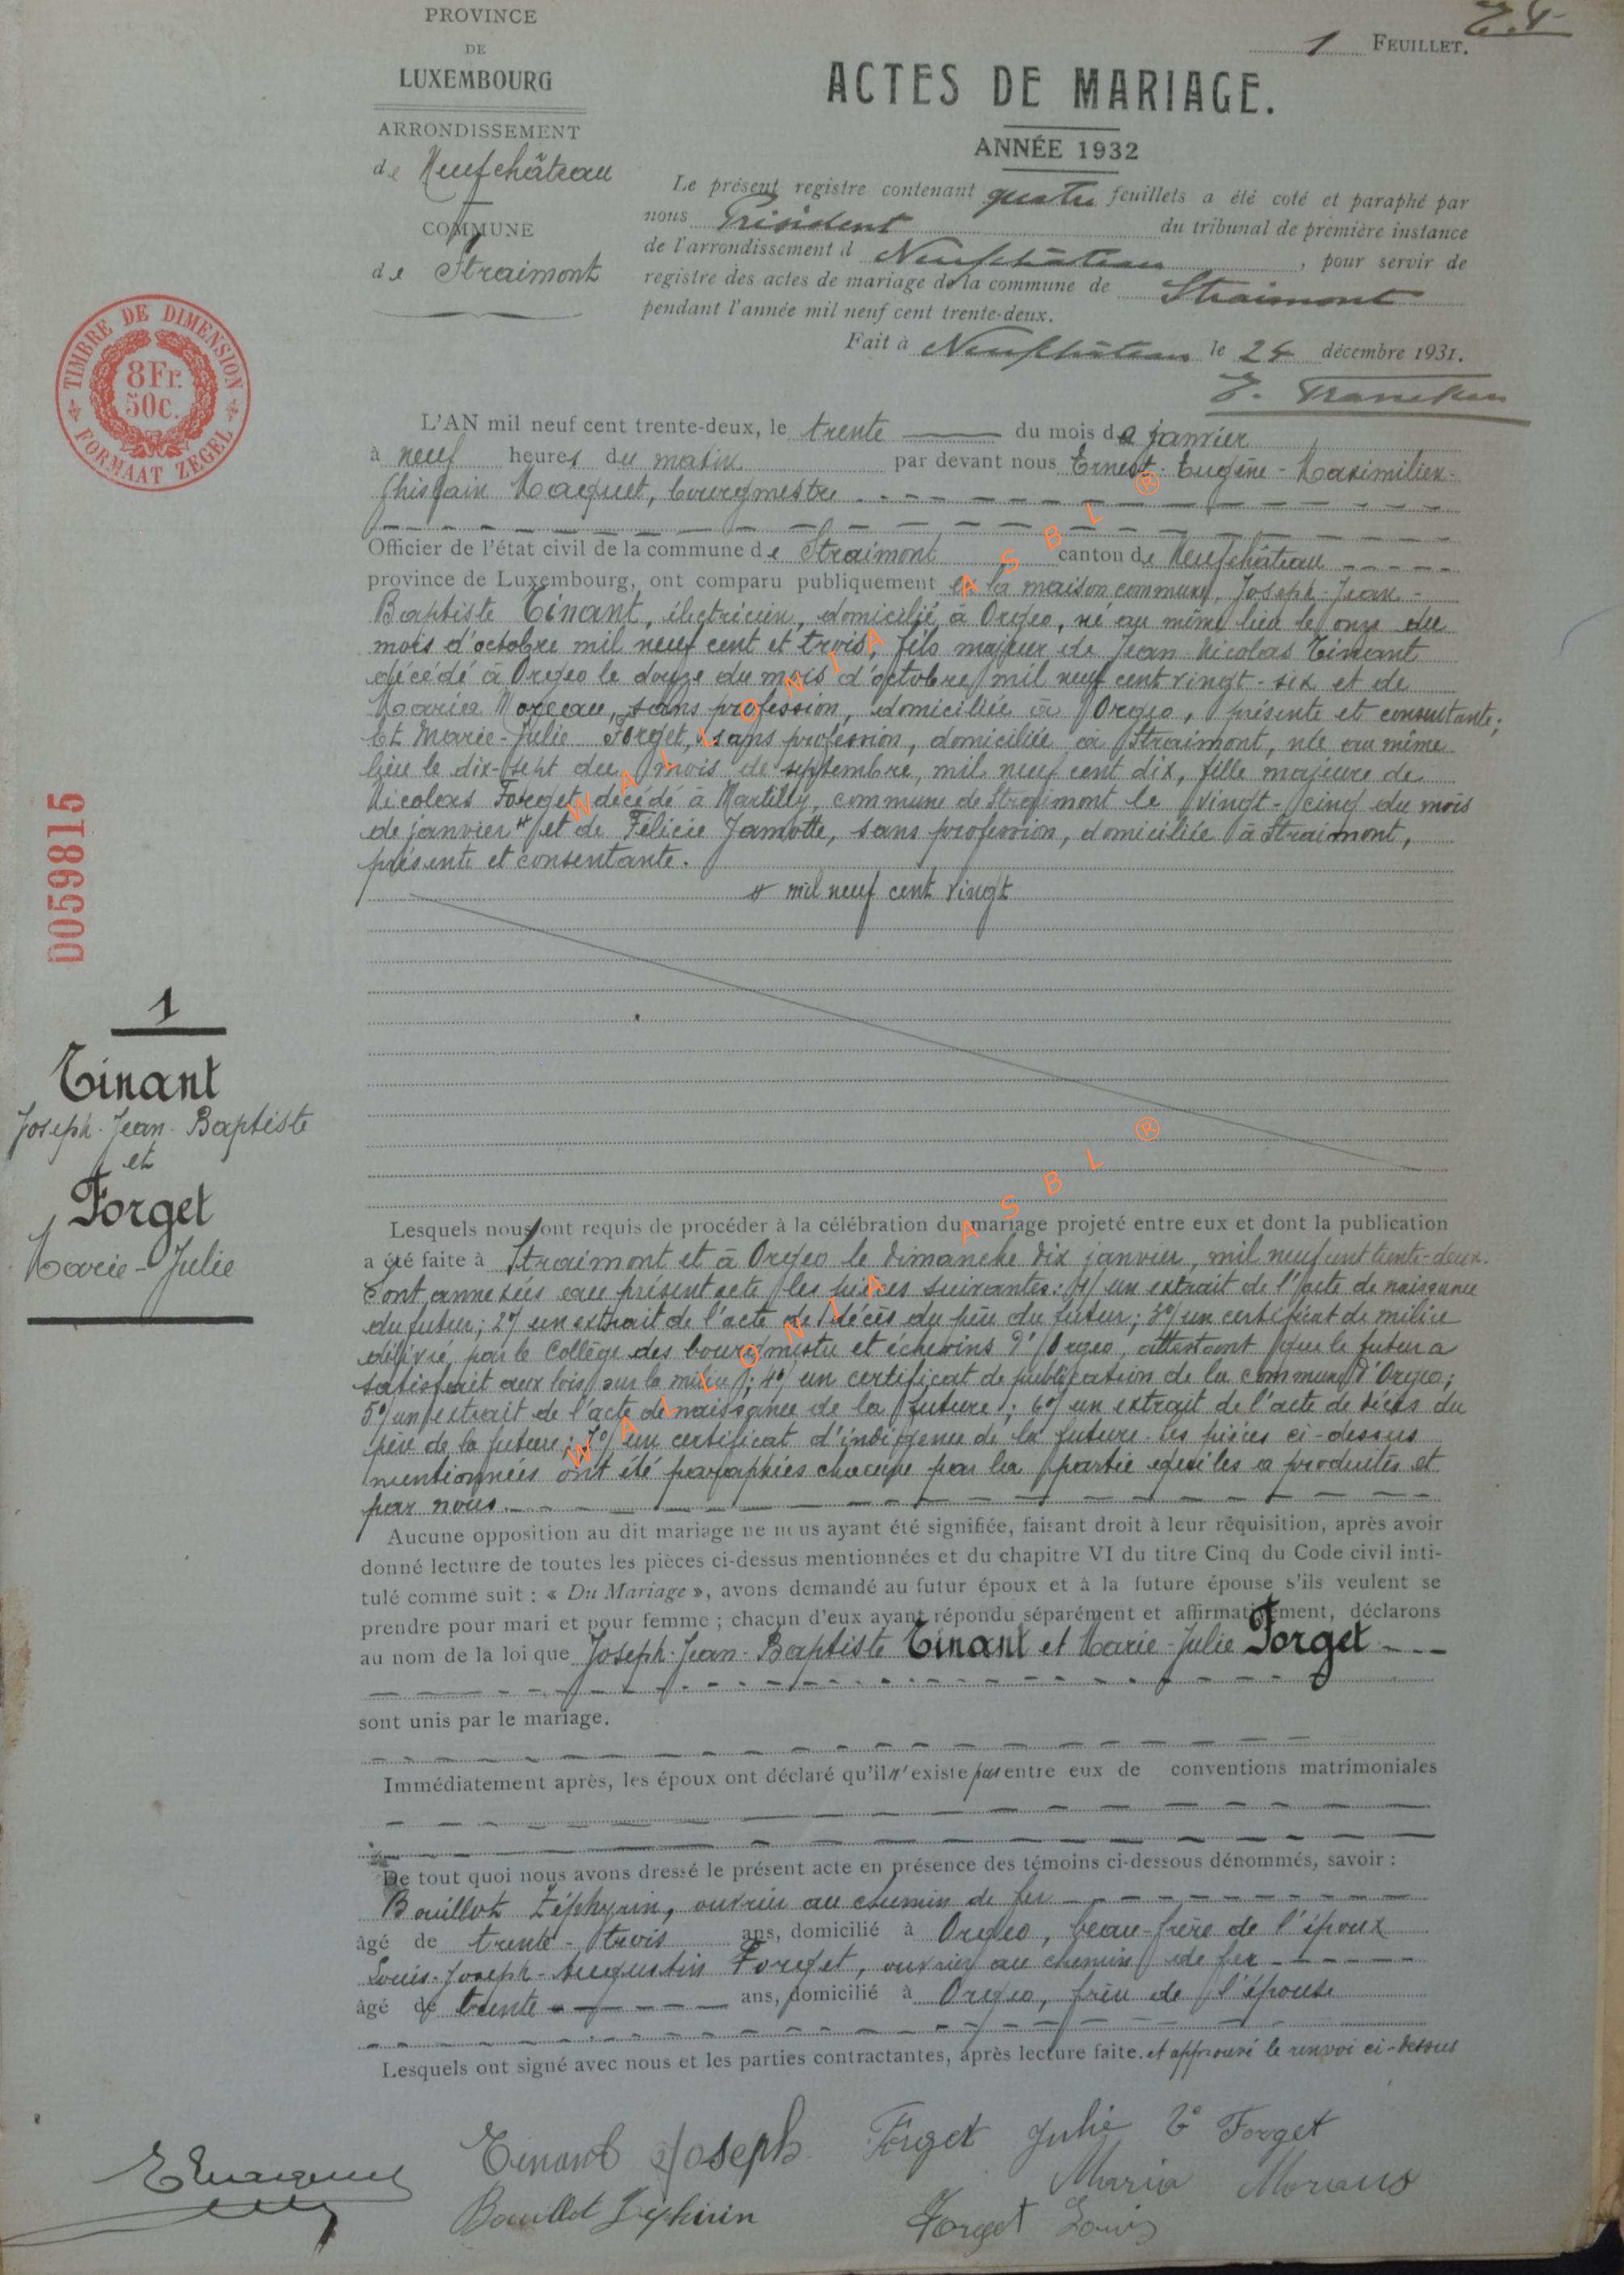 PROVINCE
DE
LUXEMBOURG
ARRONDISSEMENT
de Neufchâteau
COMMUNE
de Straimont
1 FEUILLET.
ACTES DE MARIAGE.
ANNÉE 1932
Le présent registre contenant quatre feuillets a été coté et paraphé par
nous Président du tribunal de première instance
de l'arrondissement d Neufchâteau, pour servir de
registre des actes de mariage de la commune de Straimont
pendant l'année mil neuf cent trente-deux.
Fait à Neufchâteau le 24 décembre 1931.
TIMBRE DE DIMENSION
8Fr.
50c.
FORMAAT ZEGEL
L'AN mil neuf cent trente-deux, le trente du mois de janvier
à neuf heures du matin par devant nous Ernest-Eugène-Maximilien-
Ghislain Maquet, bourgmestre
Officier de l'état civil de la commune de Straimont canton de Neufchâteau
province de Luxembourg, ont comparu publiquement en la maison commune, Joseph-Jean-
Baptiste Tinant, électricien, domicilié à Orgeo, né au même lieu le onze du
mois d'octobre mil neuf cent et trois, fils majeur de Jean-Nicolas Tinant
décédé à Orgeo le douze du mois d'octobre mil neuf cent vingt-six et de
Maria Moreau, sans profession, domiciliée à Orgeo, présente et consentante;
Et Marie-Julie Forget, sans profession, domiciliée à Straimont, née au même
lieu le dix-sept du mois de septembre, mil neuf cent dix, fille majeure de
Nicolas Forget décédé à Martilly, commune de Straimont le vingt-cinq du mois
de janvier # et de Félicie Jamotte, sans profession, domiciliée à Straimont,
présente et consentante.
# mil neuf cent vingt
D059815
1
Tinant
Joseph-Jean-Baptiste
et
Forget
Marie-Julie
Lesquels nous ont requis de procéder à la célébration du mariage projeté entre eux et dont la publication
a été faite à Straimont et à Orgeo le dimanche dix janvier, mil neuf cent trente-deux.
Sont annexées au présent acte les pièces suivantes: 1º/ un extrait de l'acte de naissance
du futur; 2º/ un extrait de l'acte de décès du père du futur; 3º/ un certificat de milice
délivré par le Collège des bourgmestre et échevins d'Orgeo, attestant que le futur a
satisfait aux lois sur la milice; 4º/ un certificat de publication de la commune d'Orgeo;
5º/ un extrait de l'acte de naissance de la future; 6º/ un extrait de l'acte de décès du
père de la future; 7º/ un certificat d'indigence de la future. Les pièces ci-dessus
mentionnées ont été paraphées chacune par la partie qui les a produites et
par nous.
Aucune opposition au dit mariage ne nous ayant été signifiée, faisant droit à leur réquisition, après avoir
donné lecture de toutes les pièces ci-dessus mentionnées et du chapitre VI du titre Cinq du Code civil inti-
tulé comme suit : « Du Mariage », avons demandé au futur époux et à la future épouse s'ils veulent se
prendre pour mari et pour femme ; chacun d'eux ayant répondu séparément et affirmativement, déclarons
au nom de la loi que Joseph-Jean-Baptiste Tinant et Marie-Julie Forget
sont unis par le mariage.
Immédiatement après, les époux ont déclaré qu'il n'existe pas entre eux de conventions matrimoniales
De tout quoi nous avons dressé le présent acte en présence des témoins ci-dessous dénommés, savoir :
Bouillot Zéphyrin, ouvrier au chemin de fer
âgé de trente-trois ans, domicilié à Orgeo, beau-frère de l'époux
Louis-Joseph-Augustin Forget, ouvrier au chemin de fer
âgé de trente ans, domicilié à Orgeo, frère de l'épouse
Lesquels ont signé avec nous et les parties contractantes, après lecture faite. et approuvé le renvoi ci-dessus
Tinant Joseph Forget Julie Ve Forget
EMaquet Maria Moreaux
Bouillot Zéphirin Forget Louis
WALLONIA ASBL ®
WALLONIA ASBL ®